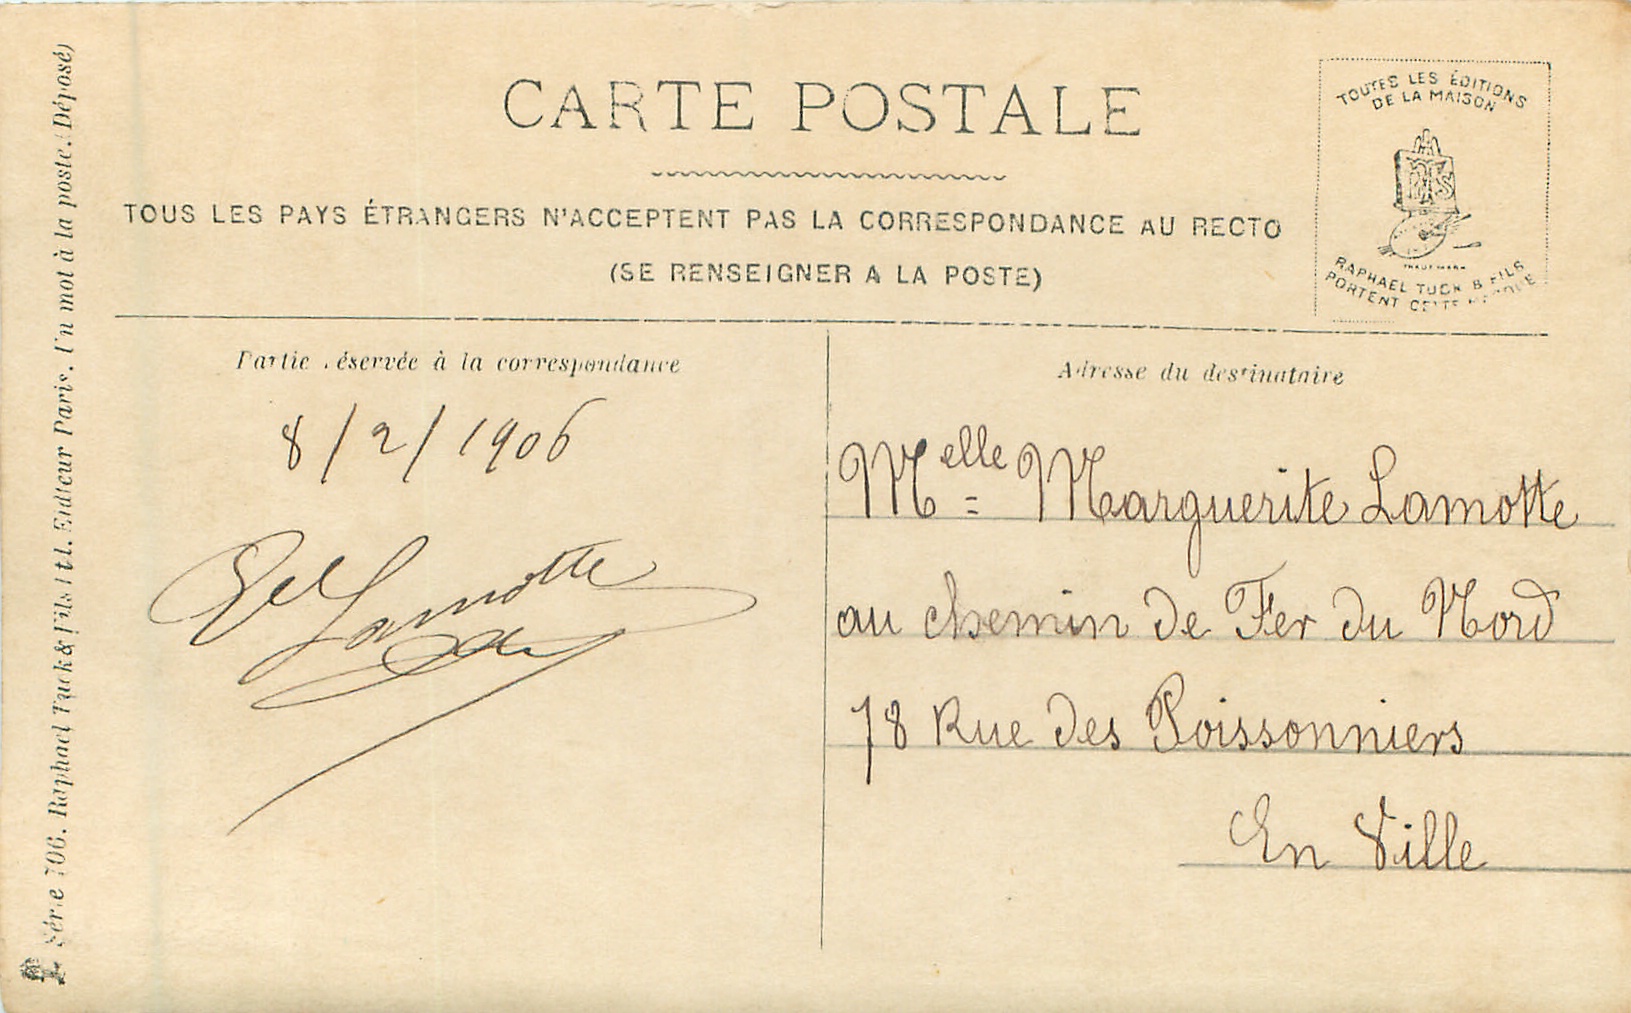 CARTE POSTALE
TOUS LES PAYS ÉTRANGERS N'ACCEPTENT PAS LA CORRESPONDANCE AU RECTO
(SE RENSEIGNER A LA POSTE)
TOUTES LES ÉDITIONS
DE LA MAISON
RAPHAEL TUCK & FILS
PORTENT CETTE MARQUE
Partie réservée à la correspondance
8/2/1906
Lamotte
Adresse du destinataire
Melle Marguerite Lamotte
au chemin de Fer du Nord
78 Rue des Poissonniers
En Ville
Série 706. Raphael Tuck & Fils Ltd. Editeur Paris. Un mot à la poste. (Déposé)